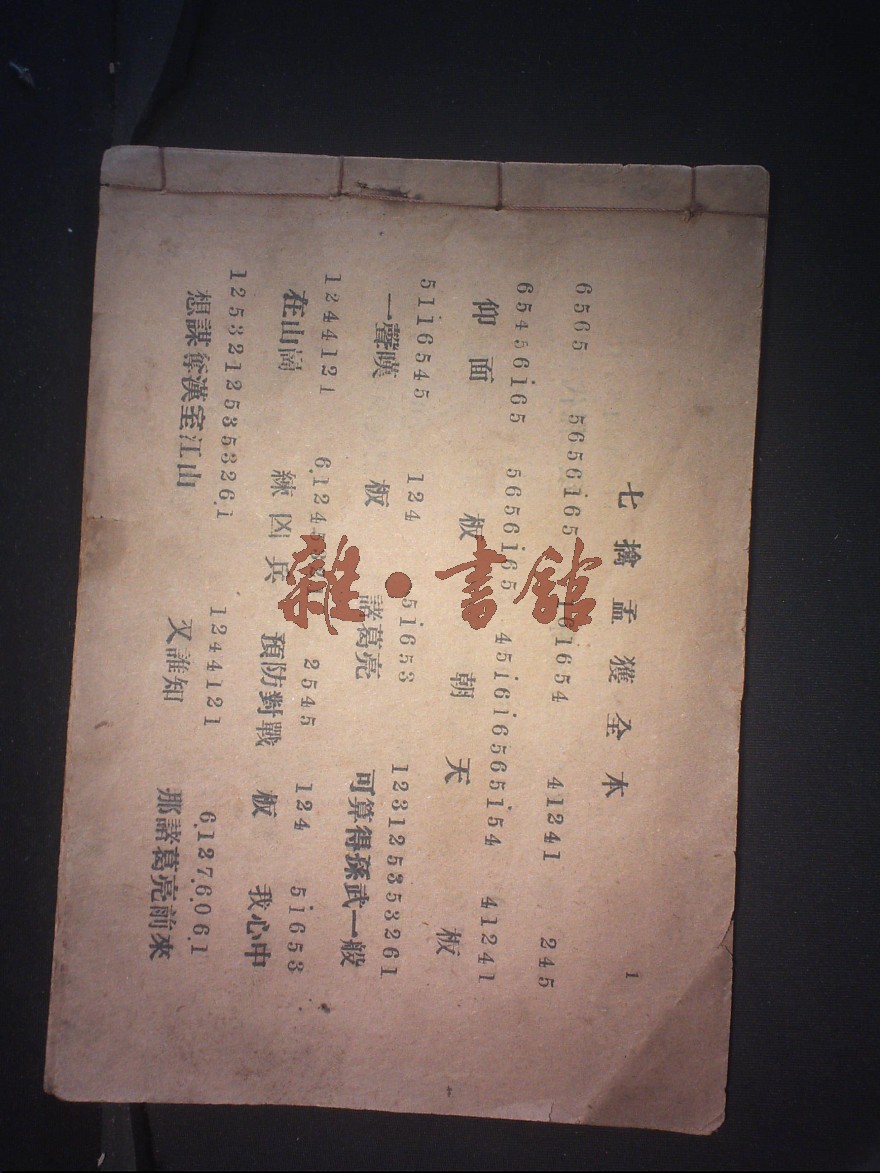 七擒孟獲全本 1
6565 5656i65 41241 245
65456i65 5656i65 45i6i6565i54 41241
仰面 板 朝天 板
51i6545 124 5i653 123125353261
一聲嘆 板 諸葛亮 可算得孫武一般
1244121 2545 124 5i653
在山崗 練凶兵 預防對戰 板 我心中
1253212535326.1 1244121 6.1276.06.1
想謀奪漢室江山 又誰知 那諸葛亮前來
雜·書館